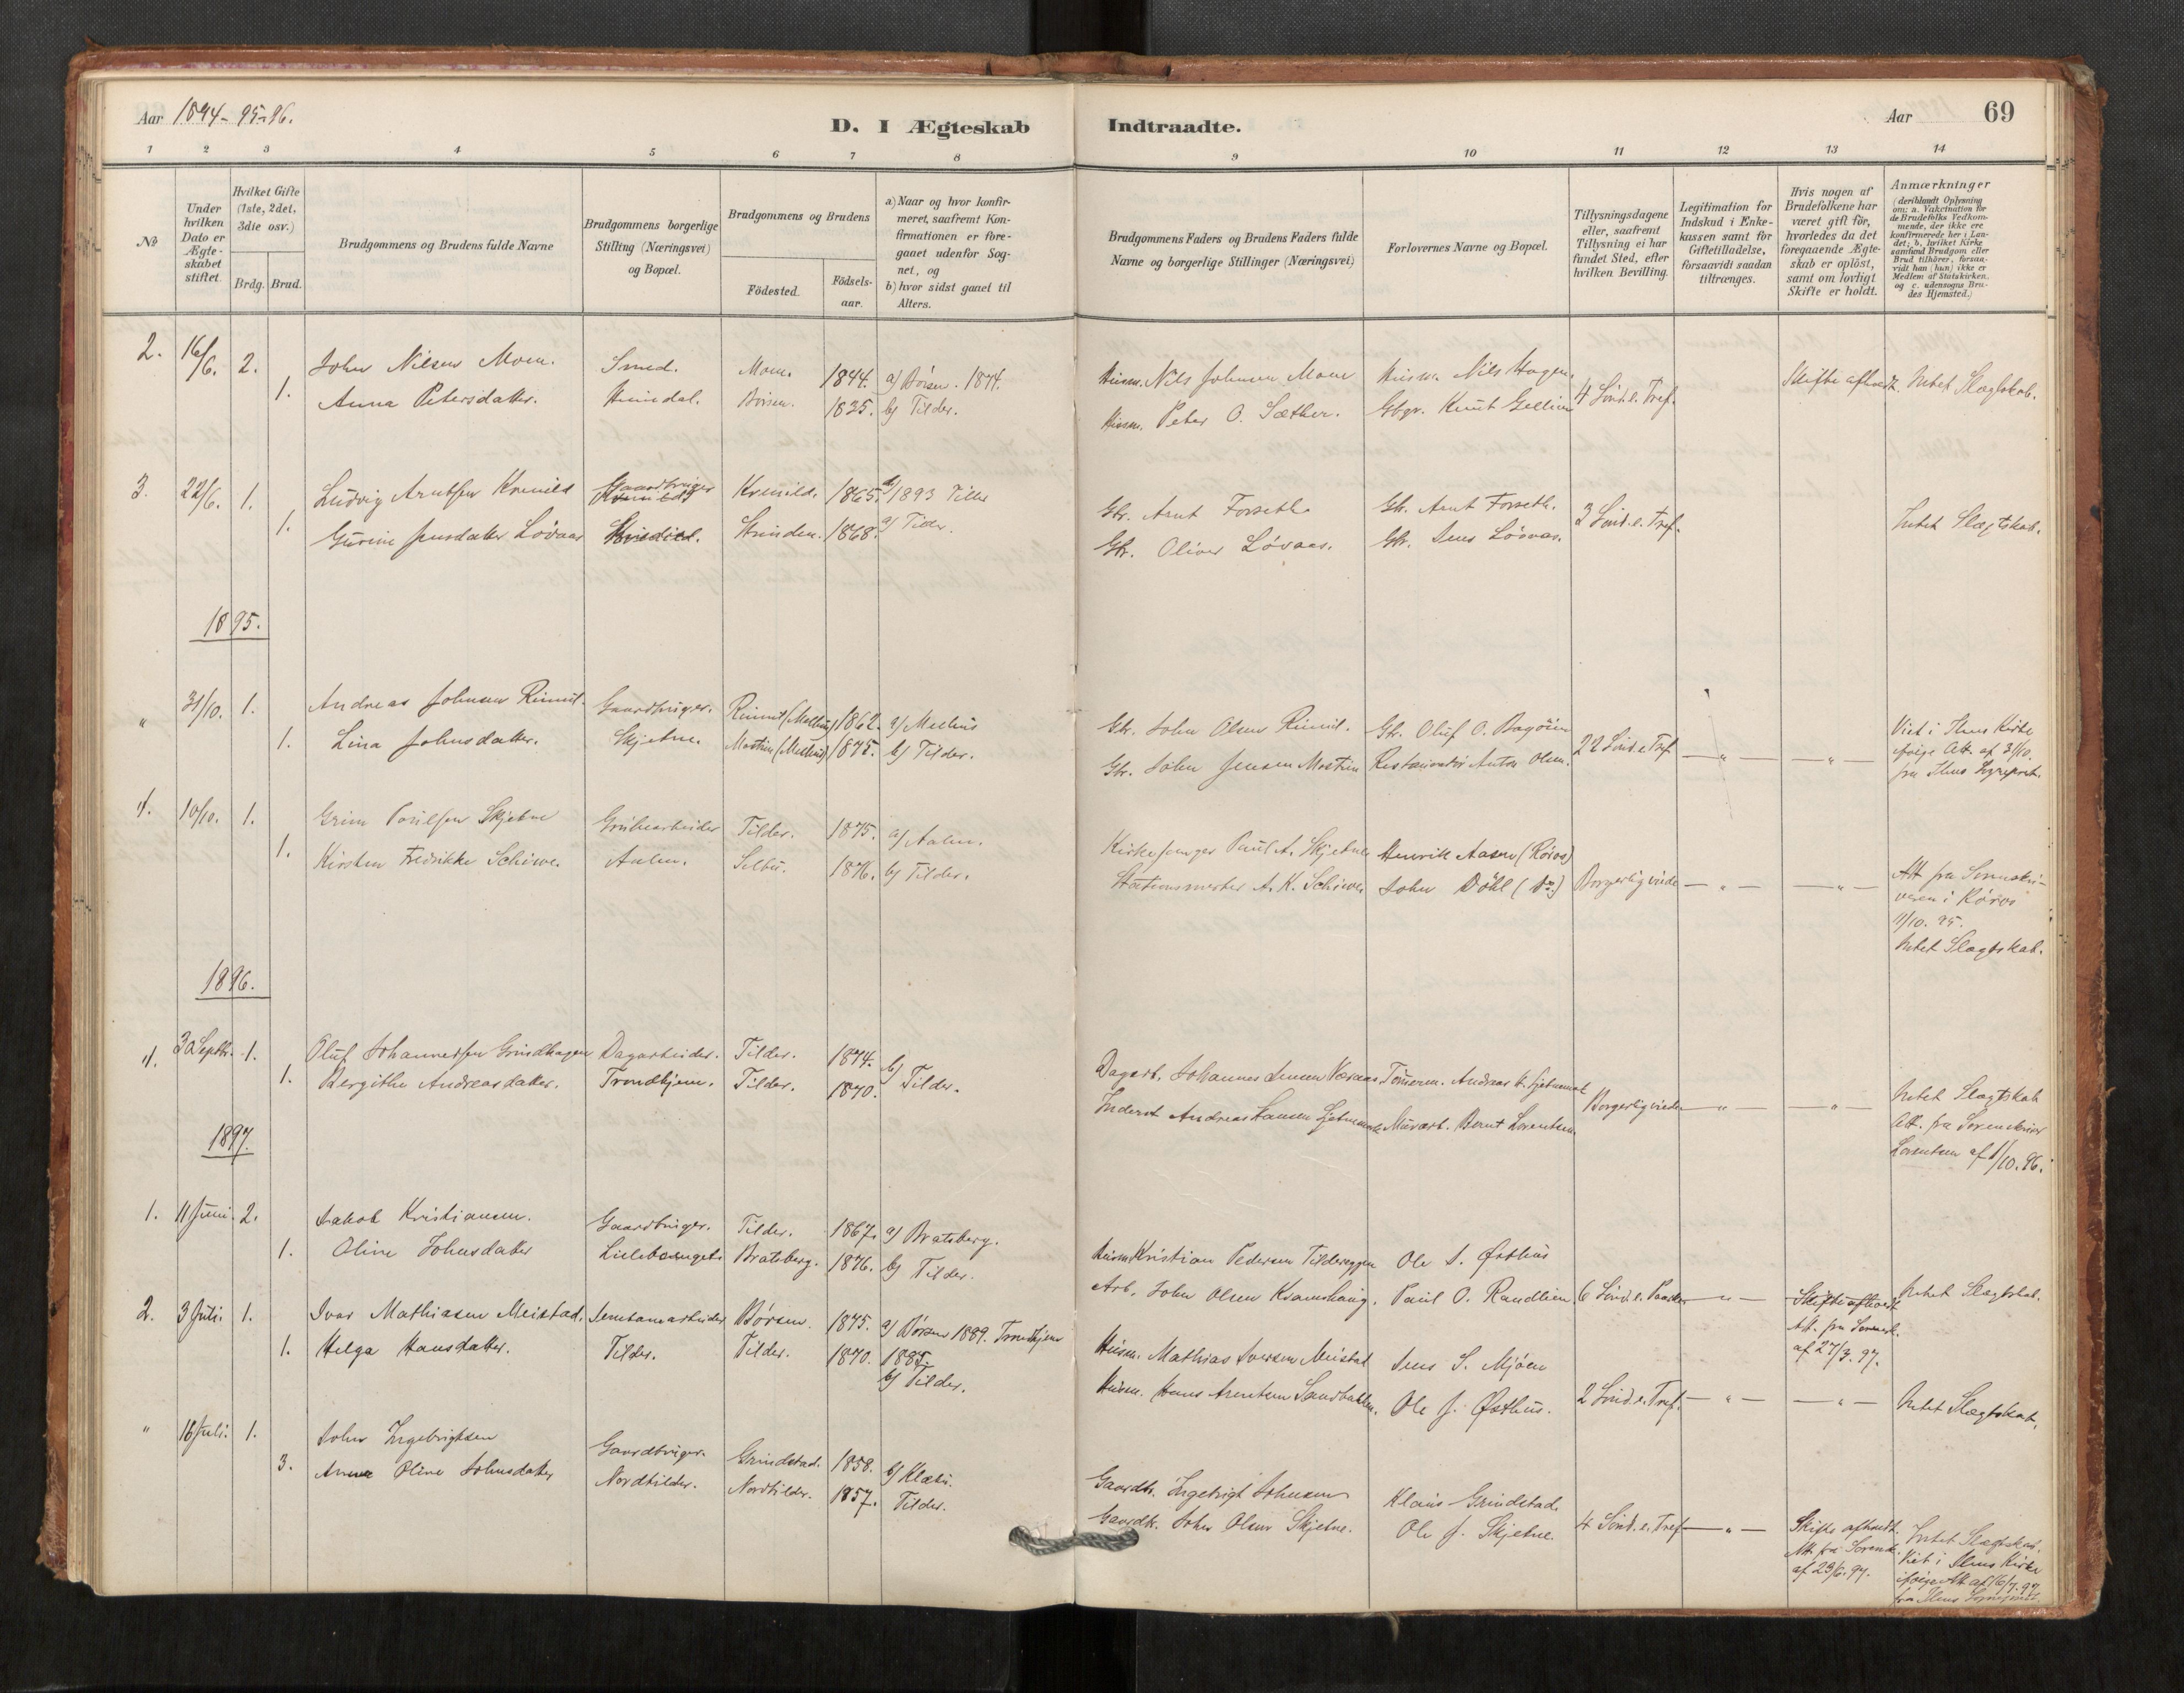 Aar 1894-95-96.
D. I Ægteskab Indtraadte.
Aar 69
1 2 3 4 5 6 7 8 9 10 11 12 13 14
No
Under hvilken Dato er Ægteskabet stiftet.
Hvilket Gifte (1ste, 2det, 3die osv.)
Brdg. Brud.
Brudgommens og Brudens fulde Navne
Brudgommens borgerlige Stilling (Næringsvei) og Bopæl.
Brudgommens og Brudens
Födested.
Födsels-aar.
a) Naar og hvor konfirmeret, saafremt Konfirmationen er foregaaet udenfor Sognet, og
b) hvor sidst gaaet til Alters.
Brudgommens Faders og Brudens Faders fulde Navne og borgerlige Stillinger (Næringsvei)
Forlovernes Navne og Bopæl.
Tillysningsdagene eller, saafremt Tillysning ei har fundet Sted, efter hvilken Bevilling.
Legitimation for Indskud i Enkekassen samt for Giftetilladelse, forsaavidt saadan tiltrænges.
Hvis nogen af Brudefolkene har været gift för, hvorledes da det foregaaende Ægteskab er oplöst, samt om lovligt Skifte er holdt.
Anmærkninger (deriblandt Oplysning om: a. Vakcination for de Brudefolks Vedkommende, der ikke ere konfirmerede her i Landet; b. hvilket Kirkesamfund Brudgom eller Brud tilhörer, forsaavidt han (hun) ikke er Medlem af Statskirken, og c. udensogns Brudes Hjemsted.)
2. 16/6. 2. John Nilsen Moen. Smed. Moen. 1844. a) Börsen. 1874. Husm. Nils Johnsen Moen Husm. Nils Hagen.
1. Anna Petersdatter. Heimdal. Börsen. 1835. b) Tilder. Husm. Peter O. Sæther. Gbgr. Knut 4 Sönd. e. Tref. Skifte afholdt. Intet Slægtskab.
3. 22/6. 1. Ludvig Arntsen Kvenild Gaardbruger Kvenild. 1865. 1893 Tiller Gbr. Arnt Forseth. Gbr. Arnt Forseth.
1. Gurine Jensdatter Lövaas Strinden. 1868. Tilder. Gbr. Oliver Lövaas. Gbr. Jens Lövaas. 3 Sönd. e. Tref. Intet Slægtskab.
1895.
" 31/10. 1. Andreas Johnsen Rimul. Gaardbruger. Rimul (Melhus) 1862. a) Melhus Gbr. John Olsen Rimul. Gbr. Oluf O. Bagöien
1. Lina Johnsdatter. Skjetne. (Melhus) 1875. b) Tilder. Gbr. John Jensen Restauratör Anton Olsen. 22 Sönd. e. Tref. — " — — " —
Viet i Ilens Kirke
ifølge Att. af 31/10.
fra Ilens Sognepræst.
1. 10/10. 1. Grim Paulsen Skjetne Grubearbeider Tilder. 1875. a) Aalen. Kirkesanger Paul A. Skjetne Henrik Aasen (Röros)
1. Kirsten Fredrikke Schiwe. Aalen. Selbu. 1876. b) Tilder. Stationsmester A. K. Schiwe John Döhl (do) Borgerlig viede — " — — " —
Att fra Sorenskri-
veren i Röros
11/10. 95.
Intet Slægtskab.
1896.
1. 30 Septbr. 1. Oluf Johannessen Grindhagen Dagarbeider. Tilder. 1874. b) Tilder. Dagarb. Johannes Jensen Tömmerm. Andreas
1. Bergithe Andreasdatter. Trondhjem. Tilder. 1870. Inderst Andreas Hansen Murarb. Bernt Lorentsen. Borgerlig viede — " — — " —
Intet Slægtskab
Att. fra Sorenskriver
Lorentsen af 1/10. 96.
1897.
1. 11 Juni. 2. Jakob Kristiansen. Gaardbruger. Tilder. 1867. a) Bratsberg. Husm. Kristian Pedersen Tildereggen Ole J. Østhus
1. Oline Johnsdatter Bratsberg. 1876. b) Tilder. Arb. John Olsen Kvamshaug. Paul O. Randlien. 6 Sönd. e. Paaske — " — Skifte afholdt Intet Slægtskab.
Att. fra Sorensk.
af 27/3. 97.
2. 3 Juli. 1. Ivar Mathiasen Meistad. Jernbanearbeider Börsen. 1875. a) Börsen 1889. Trondhjem Husm. Mathias Iversen Meistad Jens S. Mjöen
1. Helga Hansdatter. Tilder. Tilder. 1870. 1885. b) Tilder. Husm. Hans Arentsen Sandbakken. Ole J. Østhus. 2 Sönd. e. Tref. — " — — " — Intet Slægtskab.
" 16 Juli. 1. John Ingebrigtsen Gaardbruger. Grindstad. 1858. b) Klæbu. Gaardbr. Ingebrigt Johnsen Klaus Grindstad
3. Anne Oline Johnsdatter Nordtilder. Nordtilder. 1857. Tilder. Gaardbr. John Olsen Skjetne. Ole J. Skjetne. 4 Sönd. e. Tref. — " —
Skifte afholdt.
Att. fra Sorensk.
af 23/6. 97.
Intet Slægtskab.
Viet i Ilens Kirke
ifølge Att af 16/7. 97
fra Ilens Sognepræst.